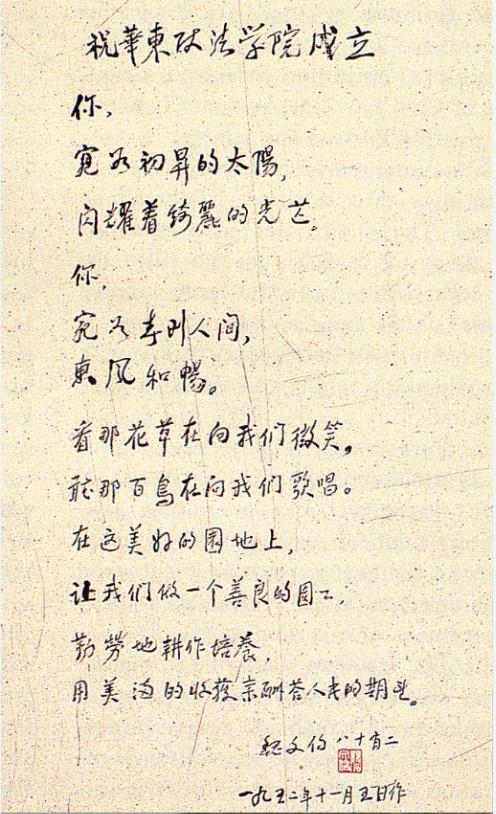 祝華東政法学院成立
你,
宛若初昇的太陽,
闪耀着綺麗的光芒。
你,
宛若春到人间,
東风和暢。
看那花草在向我们微笑,
聼那百鳥在向我们歌唱。
在这美好的园地上,
让我们做一个善良的园工,
勤勞地耕作培養,
用美满的收获来酬答人民的期望。
魏文伯八十有二
一九五二年十一月五日作